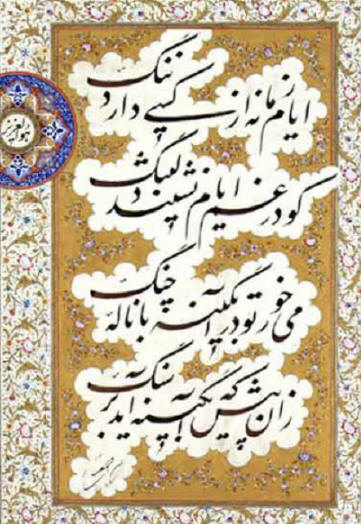 هوالعزیز
ایام زمانه از کسی دارد ننگ
کو در غم ایام نشیند دلتنگ
می خور تو در آبگینه با ناله چنگ
زان پیش که آبگینه آید بر سنگ